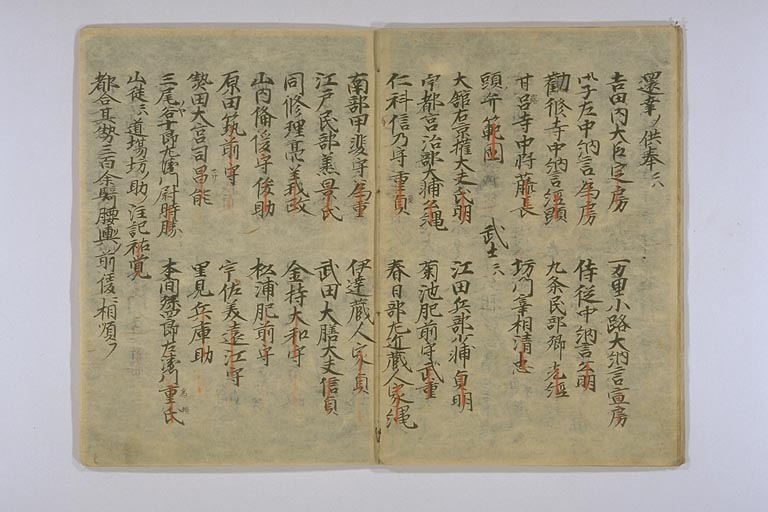 還幸ノ供奉ニハ
吉田内大臣定房　万里小路大納言宣房
竹子左中納言為房　侍従中納言公明
勧修寺中納言経顕　九条民部卿光経
甘呂寺中将藤長　坊門宰相清忠
頭弁範国　武士ニハ
大舘右京権大夫氏明　江田兵部少輔貞明
宇都宮治部大輔公綱　菊池肥前守武重
仁科信乃守重貞　春日部左近蔵人家縄
南部甲斐守為重　伊達蔵人家貞
江戸民部丞景氏　武田大膳大夫信貞
同修理亮義政　金持大和守
山内備後守俊助　松浦肥前守
原田筑前守　宇佐美遠江守
熱田大宮司昌能　里見兵庫助
三尾谷十郎左衛門尉時勝　本間孫四郎左衛門重氏
山徒ニハ道場坊ノ助ノ注記祐覚
都合其勢三百余騎腰輿ノ前後ニ相順フ